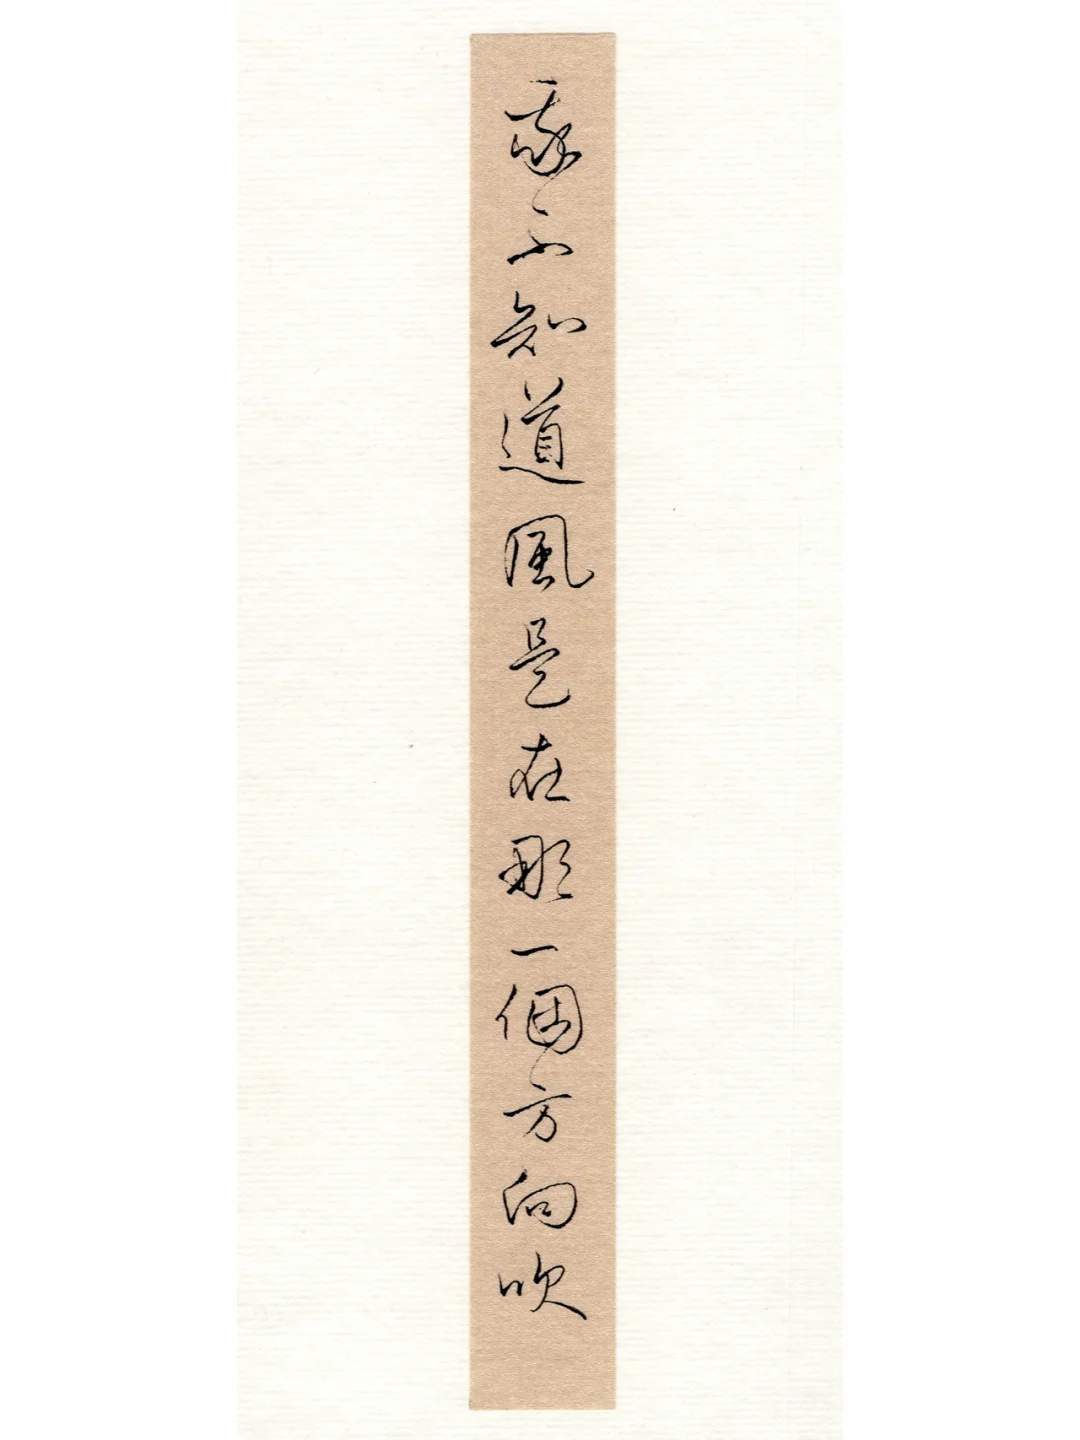 我不知道風是在那一個方向吹